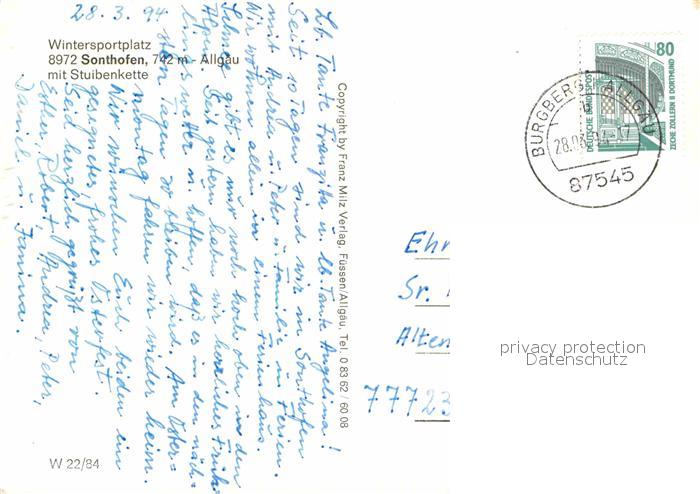 28.3.94
Wintersportplatz
8972 Sonthofen, 742 m - Allgäu
mit Stuibenkette
Lb. Tante Franziska u. lb. Tante Angelina!
Seit 10 Tagen sind wir in Sonthofen
mit Andrea u. Peter u. Familie in Ferien.
Wir wohnen allein in einem Ferienhaus.
Schnee gibt es nur noch hoch oben in den
Alpen. Seit gestern haben wir herrliches Früh-
lingswetter u. hoffen, daß es in den näch-
sten Tagen so bleiben wird. Am Oster-
montag fahren wir wieder heim.
Wir wünschen Euch beiden ein
gesegnetes, frohes Osterfest.
Seid herzlich gegrüßt von
Esther, Robert, Andrea, Peter,
Daniel u. Janina.
Copyright by Franz Milz Verlag, Füssen/Allgäu, Tel. 0 83 62 / 60 08
W 22/84
80
DEUTSCHE BUNDESPOST
ZECHE ZOLLERN II DORTMUND
BURGBERG I. ALLGÄU
87545
Ehr
Sr.
Alten
77723
privacy protection
Datenschutz